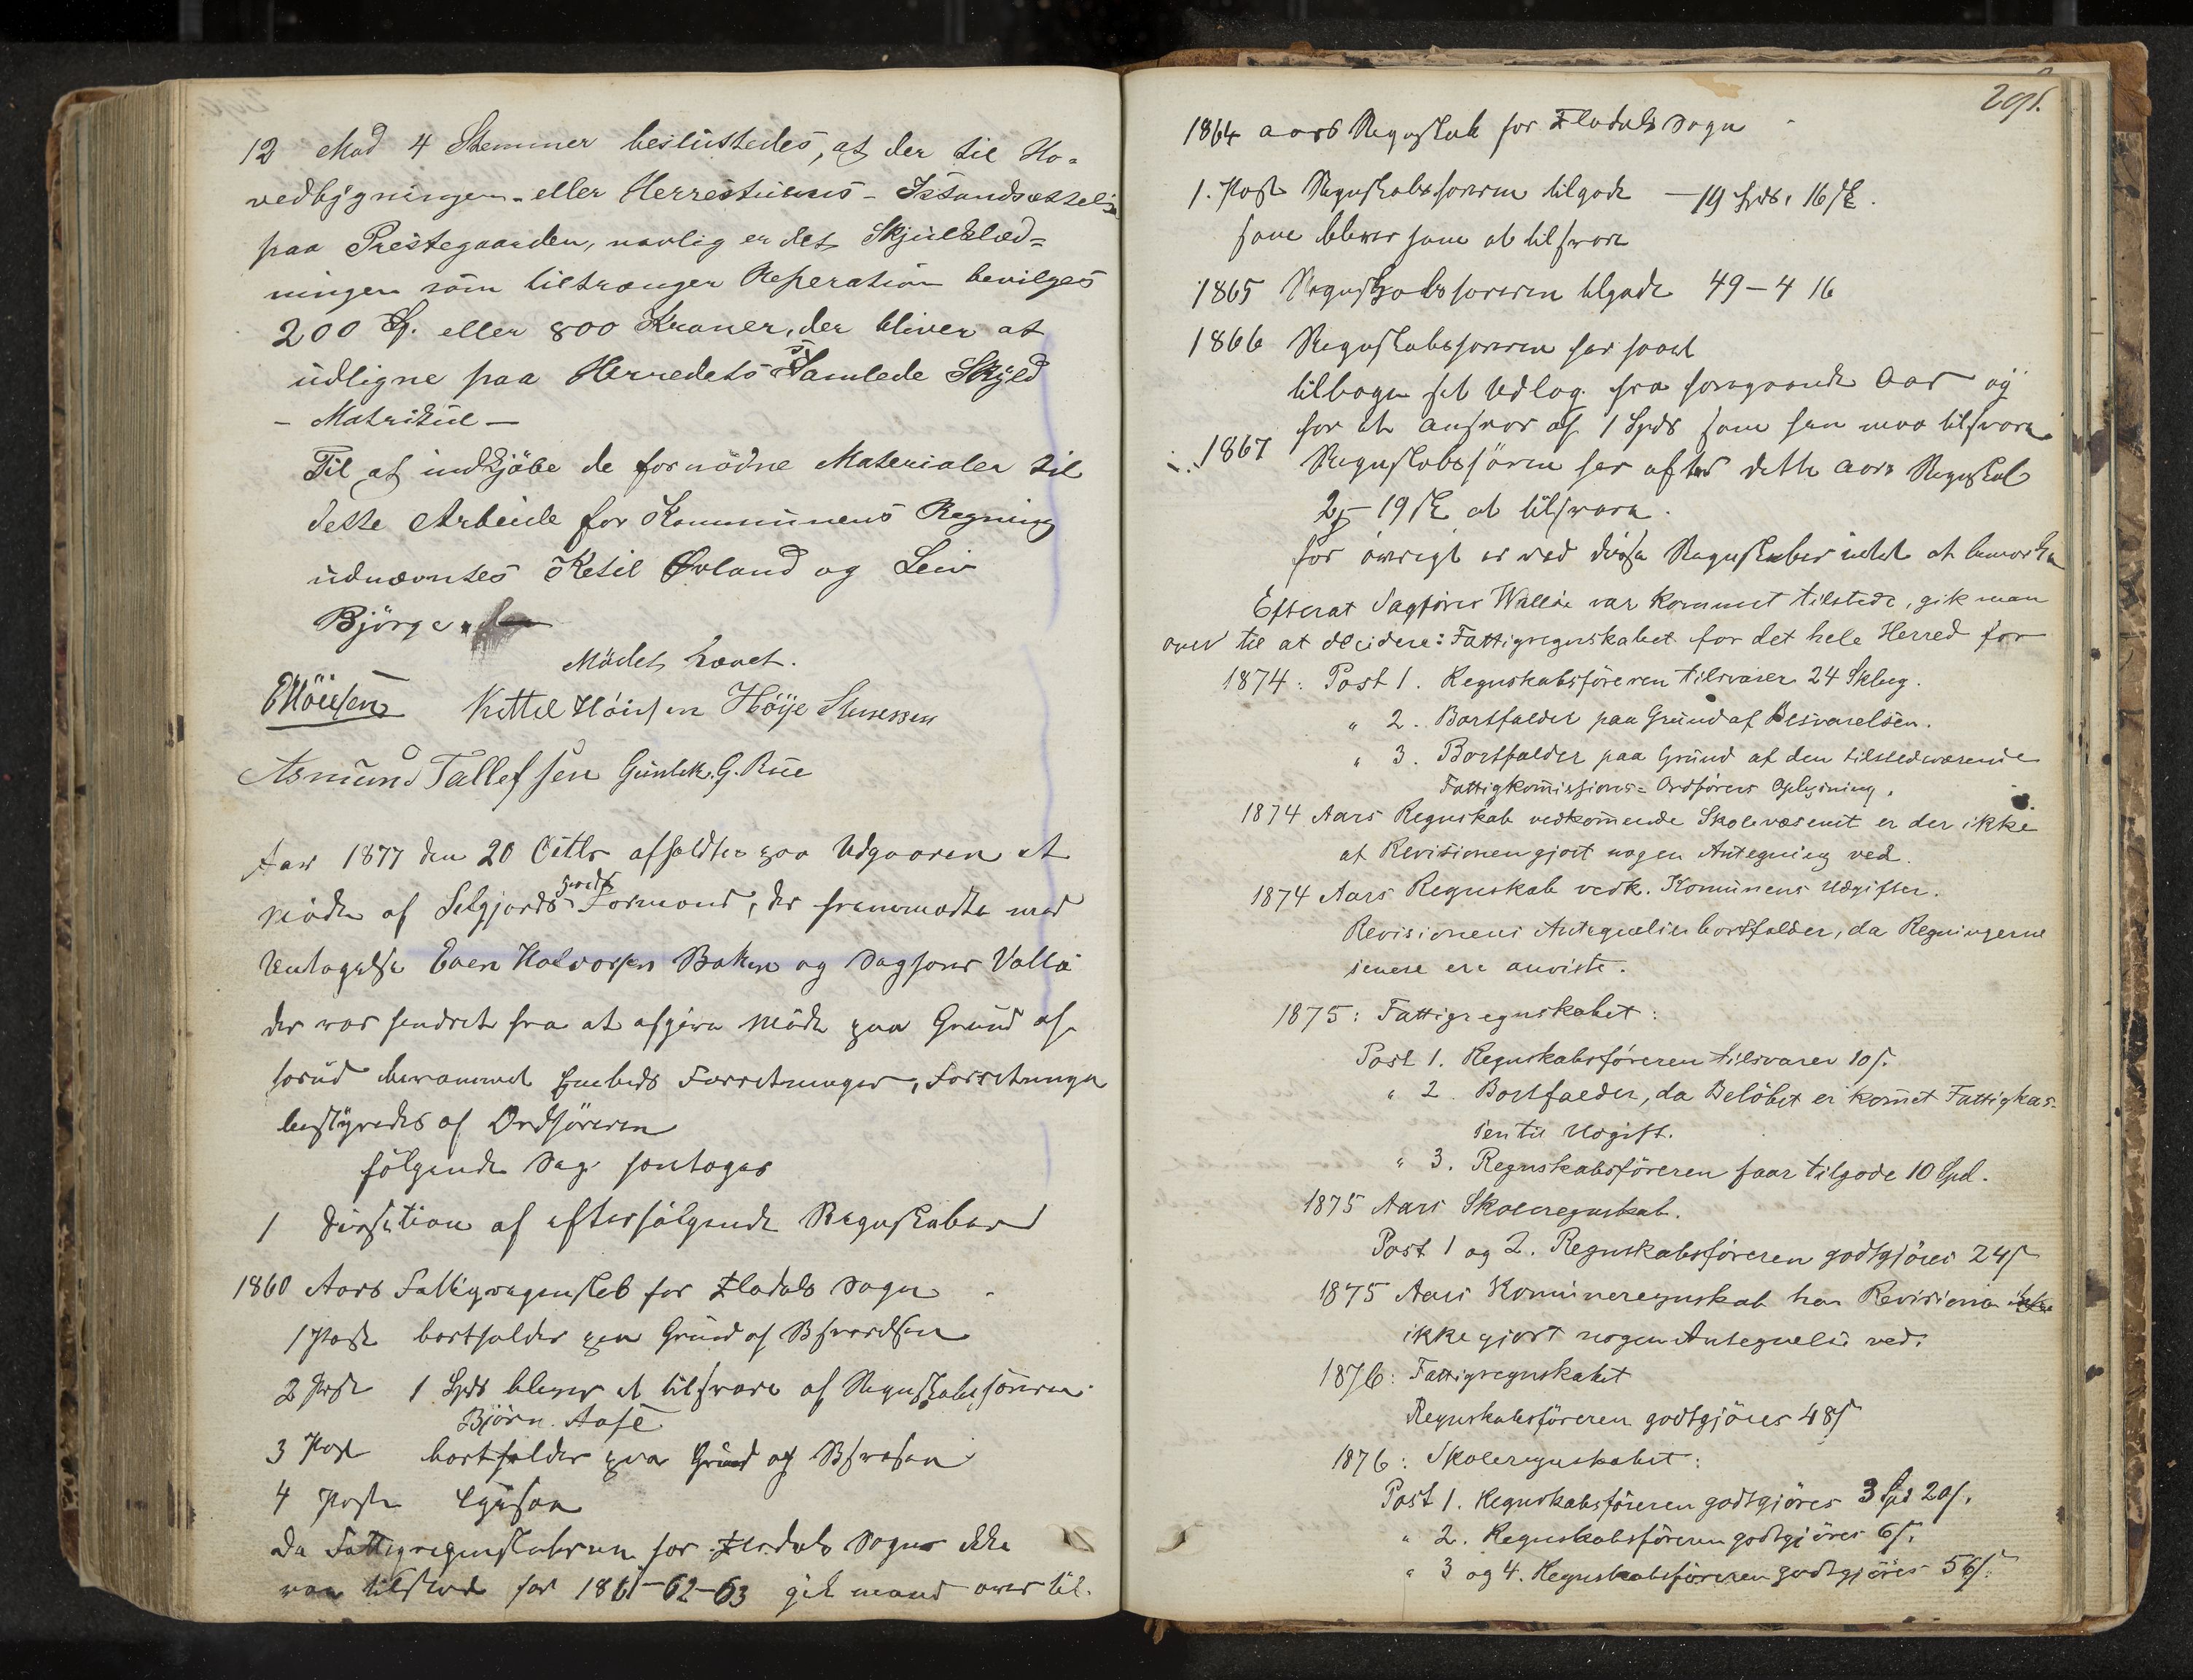 12 Med 4 Stemmer beslüttedes, at der til Ho=
vedbygningen - eller Herrestuens - Istandsættelse
paa Prestegaarden, navlig er det Skjulklæd=
ningen som tiltrænger Reperation bevilges
200 Sp. eller 800 Kroner, der bliver at
udligne paa Herredets Samlede Skyld
- Matrikül -
Til at indkjöbe de fornödne Materialer til
dette Arbeide for Kommunens Regning
udnævntes Ketil Øvland og Leiv
Björge.
Mödet hævet.
Kittel Höinsen Höÿe Stenessen
Asmund Tallefsen Gunlek. G. Rue
Aar 1877 den 20 Octbr afholdtes paa Udgaaren et
Möde af Selgjords Formand, der fremmödte med
Undtagelse Even Halvorsen Bakken og Sagförer Vallö
der var hindret fra at afgive Möde paa Grund af
forud berammet Embeds Forretninger, Forretningen
bestyredes af Ordföreren
fölgende Sag foretoges
1 Disition af efterfölgende Regnskaber
1860 Aars Fattigregenskab for Flodals Sogn
1 Post bortfalder paa Grund af Besvarelsen
2 Post 1 Spd bliver at tilsvare af Regnskabsföreren
Björn Aase
3 Post bortfalder paa Grund af
4 Post Ligesaa
Da Fattigregenskaberne for Flodals Sogn ikke
var tilstede for 1861-62-63 gik mand over til.
291.
1864 aars Regnskab for Flodals Sogn
1. Post Regnskabsföreren tilgode - 19 Spd. 16 sk.
som bliver ham at tilsvare
1865 Regnskabsföreren tilgode 49 - 4 16
1866 Regnskabsföreren har faaet
tilbage sit Udlæg fra foregaaende Aar og
for et ansvar af 1 Spd som han maa tilsvare
1867 Regnskabsföreren har efter dette aars Regnskab
2 - 19 sk at tilsvare.
for övrigt er ved disse Regnskaber intet at bemærke
Efterat Sagförer Wallöe var kommet tilstede, gik man
over til at decidere: Fattigregnskabet for det hele Herred for
1874: Post 1. Regnskabsföreren tilsvarer 24 Skling.
" 2. Bortfalder paa Grund af Besvarelsen.
" 3. Bortfalder paa Grund af den tilstedeværende
Fattigkomissions= Ordförers Oplysning.
1874 Aars Regnskab vedkomende Skolevæsenet er der ikke
af Revisionen gjort nogen Antegning ved.
1874 Aars Regnskab vedk. Komünens Udgifter.
Revisionens Antegnelser bortfalder, da Regningerne
senere ere anviste.
1875: Fattigregnskabet:
Post 1. Regnskabsföreren tilsvarer 10 s.
" 2. Bortfalder, da Belöbet er komet Fattigkas-
sen til Udgift.
" 3. Regnskabsföreren faar tilgode 10 Spd.
1875 Aars Skoleregnskab.
Post 1 og 2. Regnskabsföreren godtgjöres 24 s
1875 Aars Komüneregnskab har Revisionen ikke
ikke gjort nogen Antegnelse ved.
1876: Fattigregnskabet
Regnskabsföreren godtgjöres 48 s
1876: Skoleregnskabet:
Post 1. Regnskabsföreren godtgjöres 3 Spd 20 s.
" 2. Regnskabsföreren godtgjöres 6 s.
" 3 og 4. Regnskabsföreren godtgjöres 56 s.